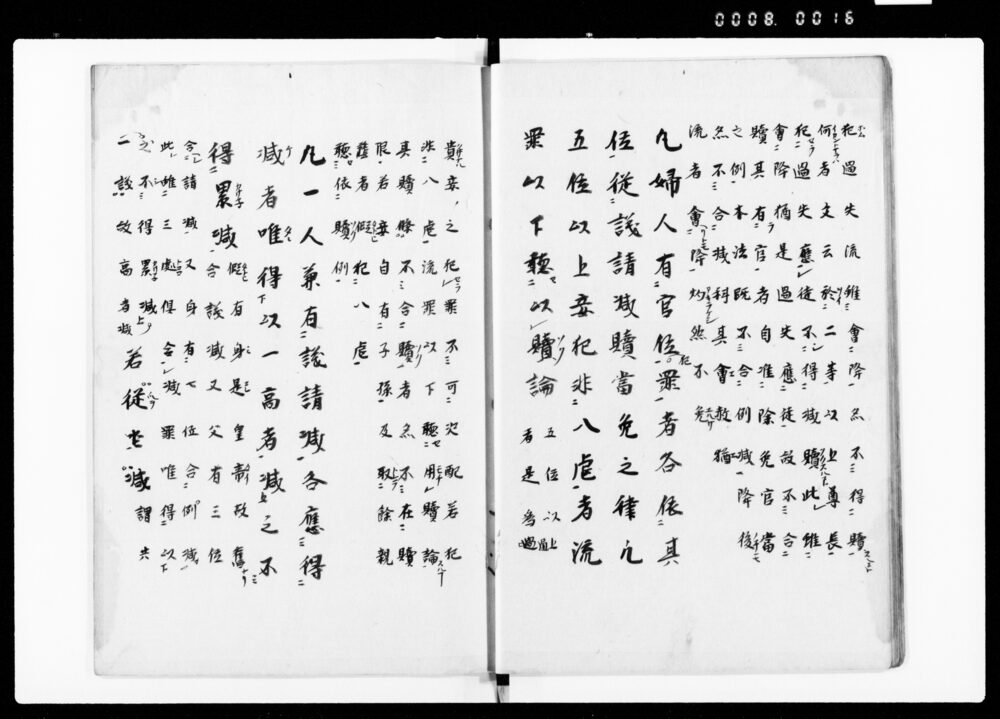 0008. 0016
犯過失流雖會降亦不得贖
何者文云於二等以上尊長
犯過失應徒不得減贖此雖
會降猶是過失應徒故不合
贖其有官者自准除免官當
之例本法既不合例減降後
亦不合減科其會赦猶
流者會降灼然不免
凡婦人有官位犯罪者各依其
位從議請減贖當免之律凡
五位以上妾犯非八虐者流
罪以下聽以贖論
五位以上
者是為
貴妾之犯罪不可決配若犯
非八虐流罪以下聽用贖論
其贖條不合贖者亦不在贖
限若妾自有子孫及取餘親
蔭者假犯八虐
聽依贖例
凡一人兼有議請減各應得
減者唯得以一高者減之不
得累減
假有身是皇親故奪
合議減又父有三位
合請減又身有七位合例減
此雖三處俱合減罪唯得以
之不得累減
二議故高者減
若從坐減
謂共